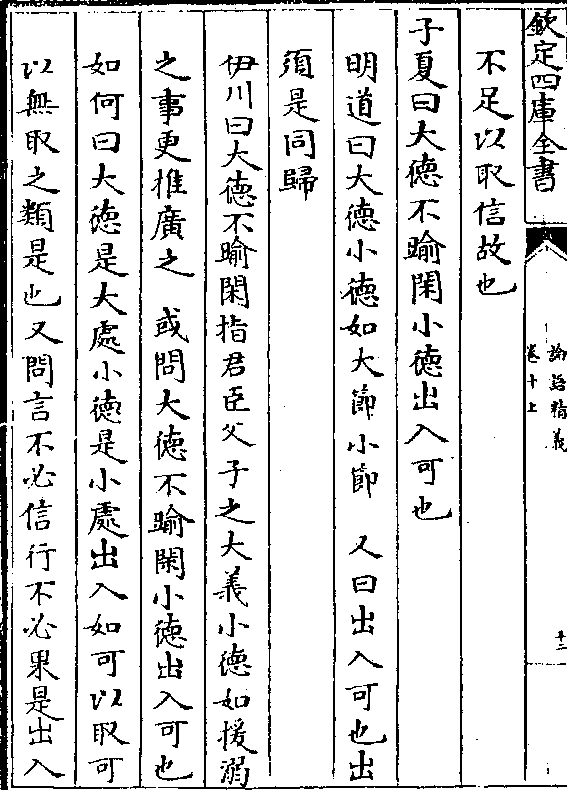 欽定四庫全書
論語精義
卷十上
十二
不足以取信故也
子夏曰大德不踰閑小德出入可也
明道曰大德小德如大節小節　又曰出入可也出
須是同歸
伊川曰大德不踰閑指君臣父子之大義小德如援溺
之事更推廣之　或問大德不踰閑小德出入可也
如何曰大德是大處小德是小處出入如可以取可
以無取之類是也又問言不必信行不必果是出入